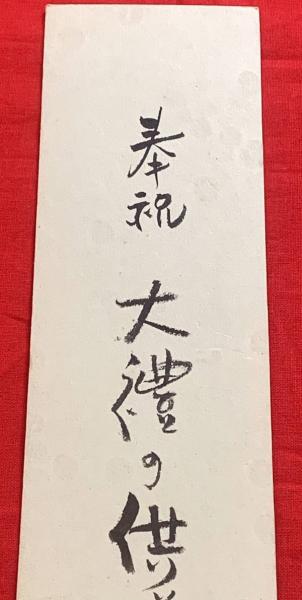 奉祝 大禮の供